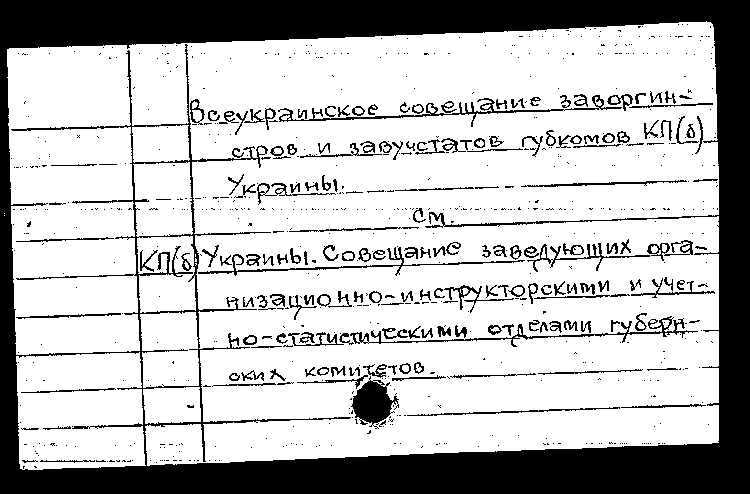 Всеукраинское совещание заворгин-
стров и завучстатов губкомов КП(б)
Украины.
см.
КП(б) Украины. Совещание заведующих орга-
низационно-инструкторскими и учет-
но-статистическими отделами губерн-
ских комитетов.